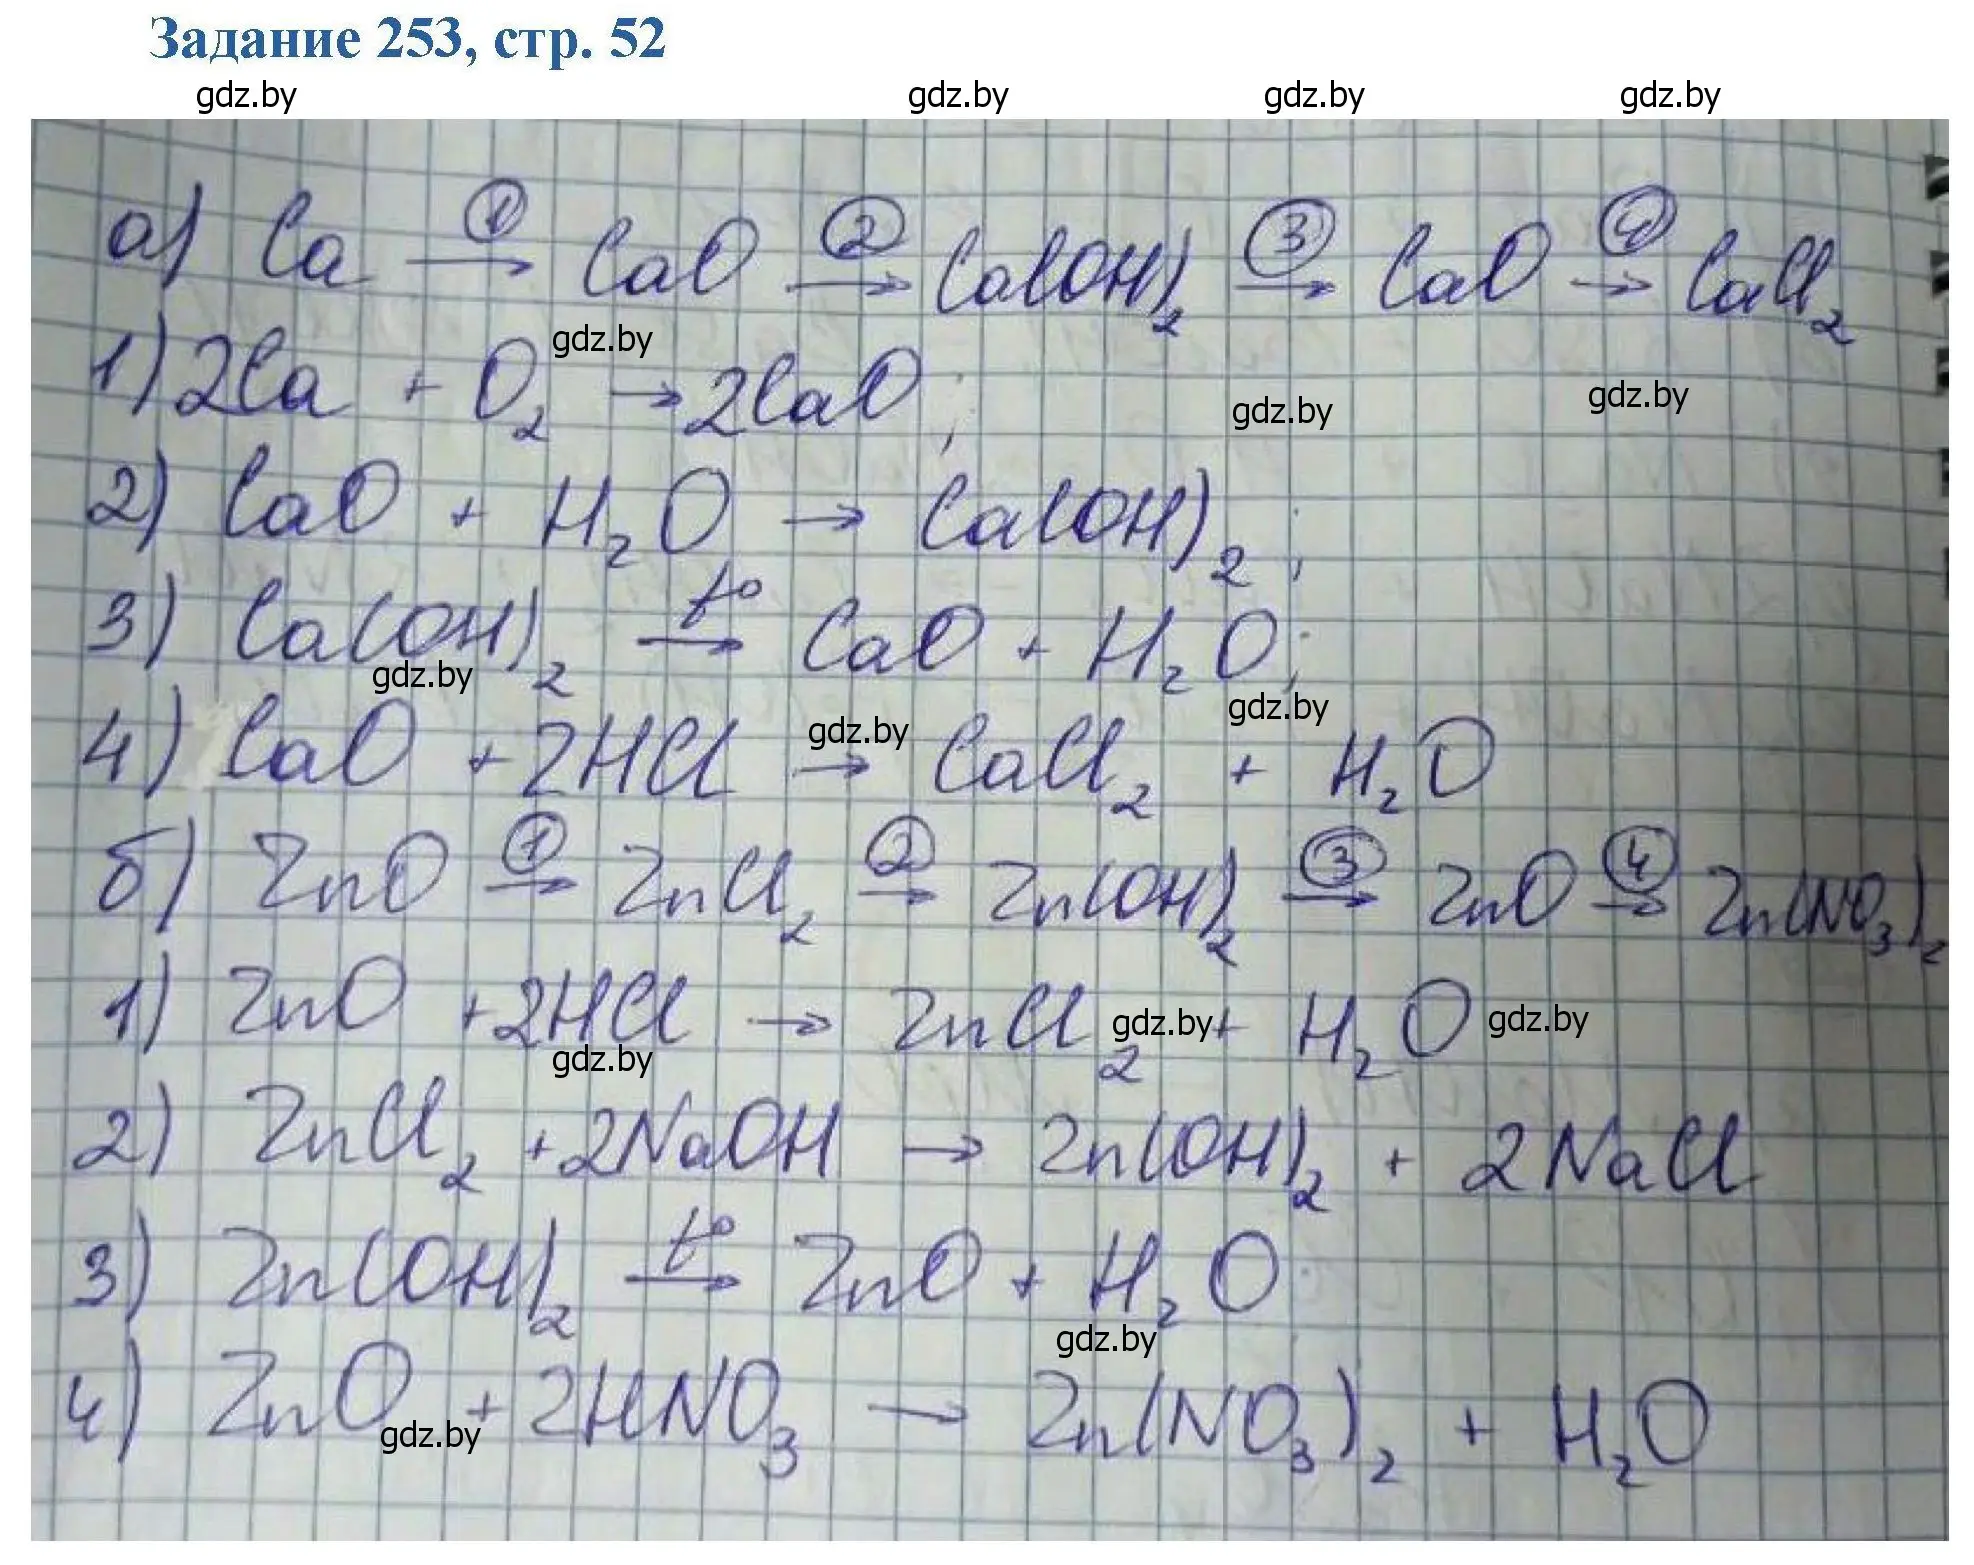 Задание 253, стр. 52
gdz.by gdz.by gdz.by gdz.by
а) Ca ①→ CaO ②→ Ca(OH)₂ ③→ CaO ④→ CaCl₂
gdz.by
1) 2Ca + O₂ → 2CaO;
gdz.by gdz.by
2) CaO + H₂O → Ca(OH)₂;
3) Ca(OH)₂ t°→ CaO + H₂O;
gdz.by gdz.by gdz.by
4) CaO + 2HCl → CaCl₂ + H₂O
б) ZnO ①→ ZnCl₂ ②→ Zn(OH)₂ ③→ ZnO ④→ Zn(NO₃)₂
1) ZnO + 2HCl → ZnCl₂ + H₂O
gdz.by gdz.by gdz.by
2) ZnCl₂ + 2NaOH → Zn(OH)₂ + 2NaCl
3) Zn(OH)₂ t°→ ZnO + H₂O
gdz.by
4) ZnO + 2HNO₃ → Zn(NO₃)₂ + H₂O
gdz.by